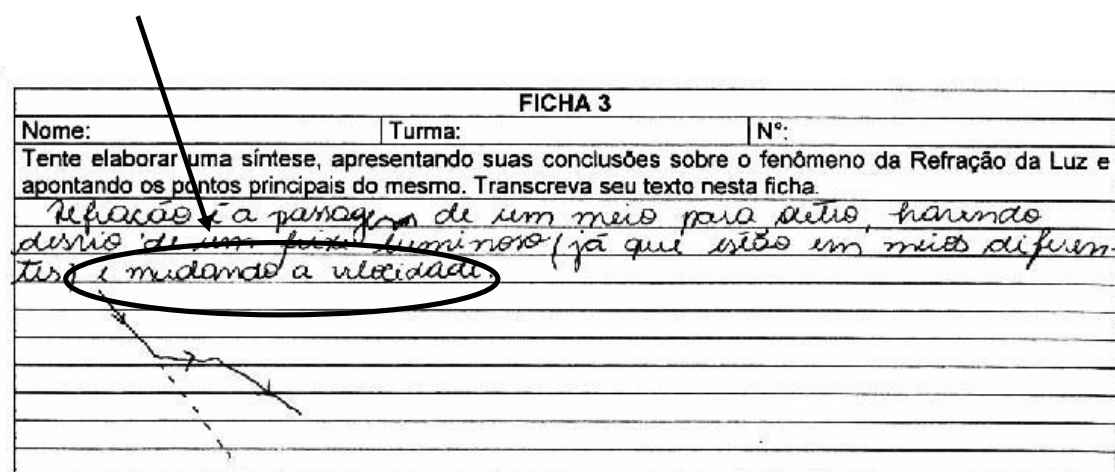 FICHA 3
Nome: Turma: N°:
Tente elaborar uma síntese, apresentando suas conclusões sobre o fenômeno da Refração da Luz e
apontando os pontos principais do mesmo. Transcreva seu texto nesta ficha.
Refração é a passagem de um meio para outro, havendo
desvio de um feixe luminoso (já que estão em meios diferen-
tes) e mudando a velocidade.